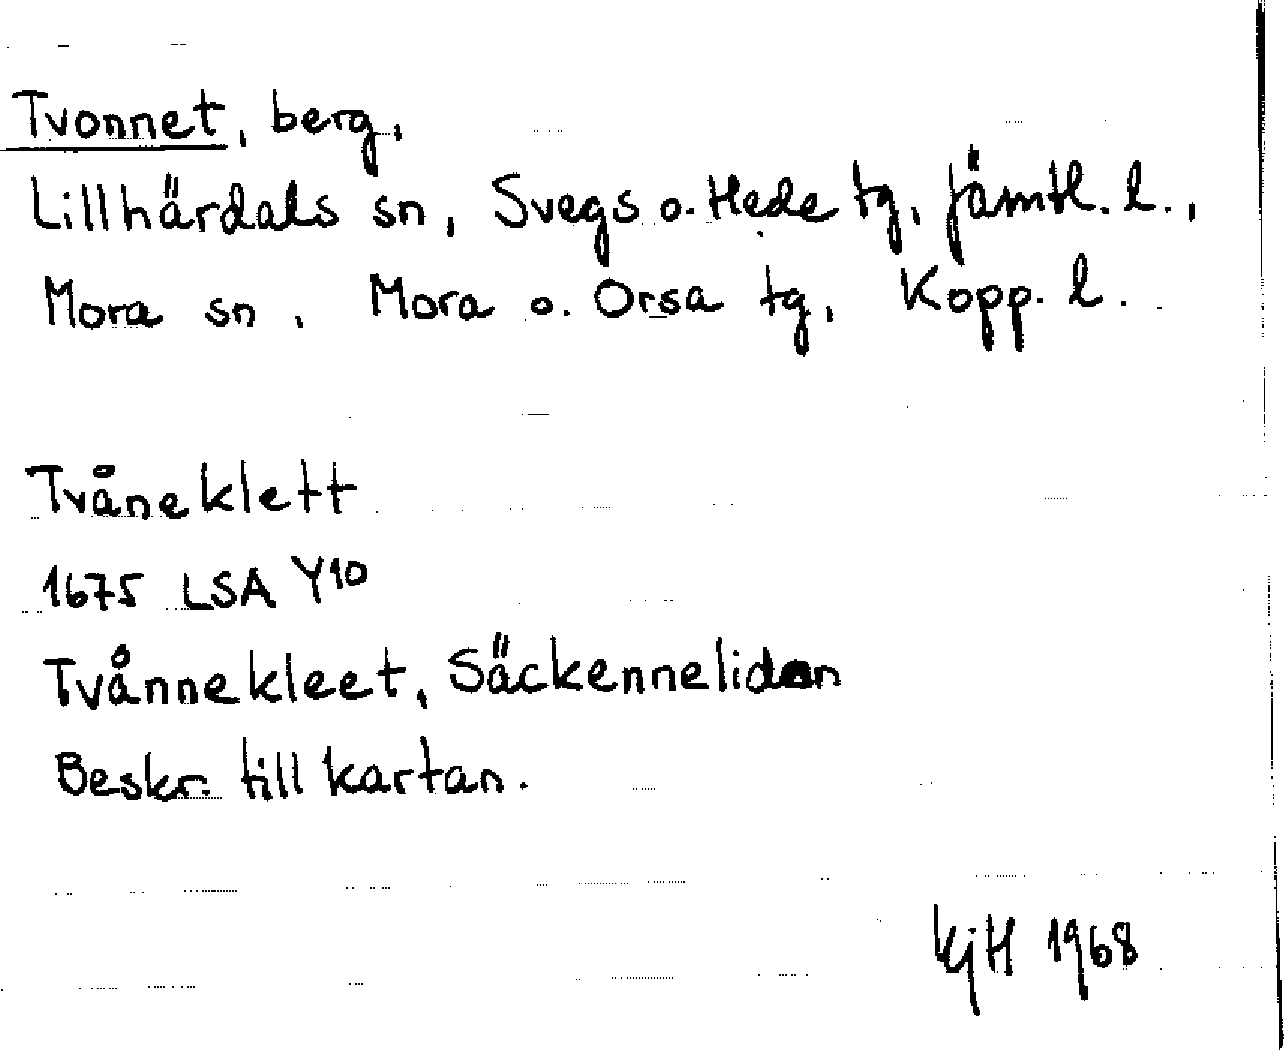 Tvonnet, berg,
Lillhärdals sn, Svegs o. Hede tg, Jämtl. l.,
Mora sn, Mora o. Orsa tg, Kopp. l.
Tvåneklett
1675 LSA Y10
Tvånnekleet, Säckenneliden
Beskr. till kartan.
KjH 1968